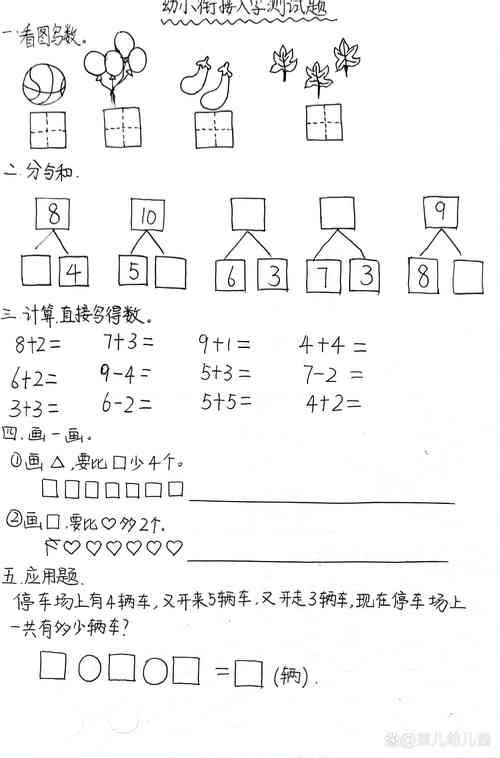 幼小衔接入学测试题
一.看图写数。
二.分与和.
8 10 9
4 5 6 3 7 3 8
三.计算.直接写得数。
8+2= 7+3= 9+1= 4+4=
6+2= 9-4= 5+3= 7-2=
3+3= 6-2= 5+5= 4+2=
四.画一画。
①画△,要比□少4个。
②画□.要比♡多2个.
五.应用题.
停车场上有4辆车,又开来5辆车.又开走3辆车,现在停车场上
一共有多少辆车?
□○□○□=□(辆).